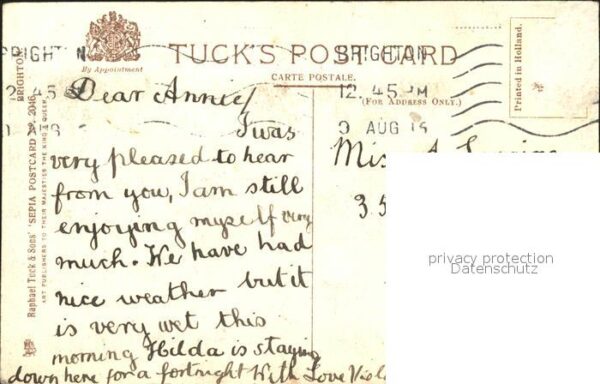 BRIGHTON
BRIGHTON
12.45 PM
9 AUG 15
By Appointment
TUCK'S POST CARD
CARTE POSTALE.
(FOR ADDRESS ONLY.)
Printed in Holland.
BRIGHTON
Raphael Tuck & Sons' "SEPIA" POSTCARD No. 2046
ART PUBLISHERS TO THEIR MAJESTIES THE KING & QUEEN.
Dear Annie/
I was
very pleased to hear
from you, I am still
enjoying myself very
much. We have had
nice weather but it
is very wet this
morning Hilda is staying
down here for a fortnight With Love
Miss
35
privacy protection
Datenschutz